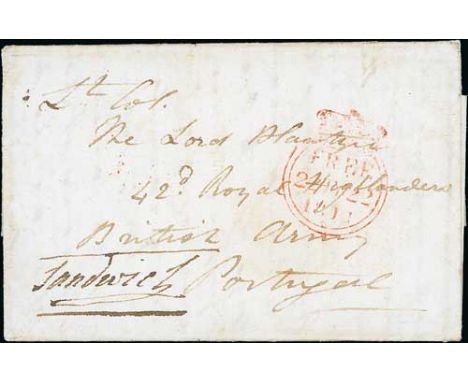 Lt. Col.
The Lord Blantyre
42d Royal Highlanders
British Army
Sandwich Portugal
FREE
1811